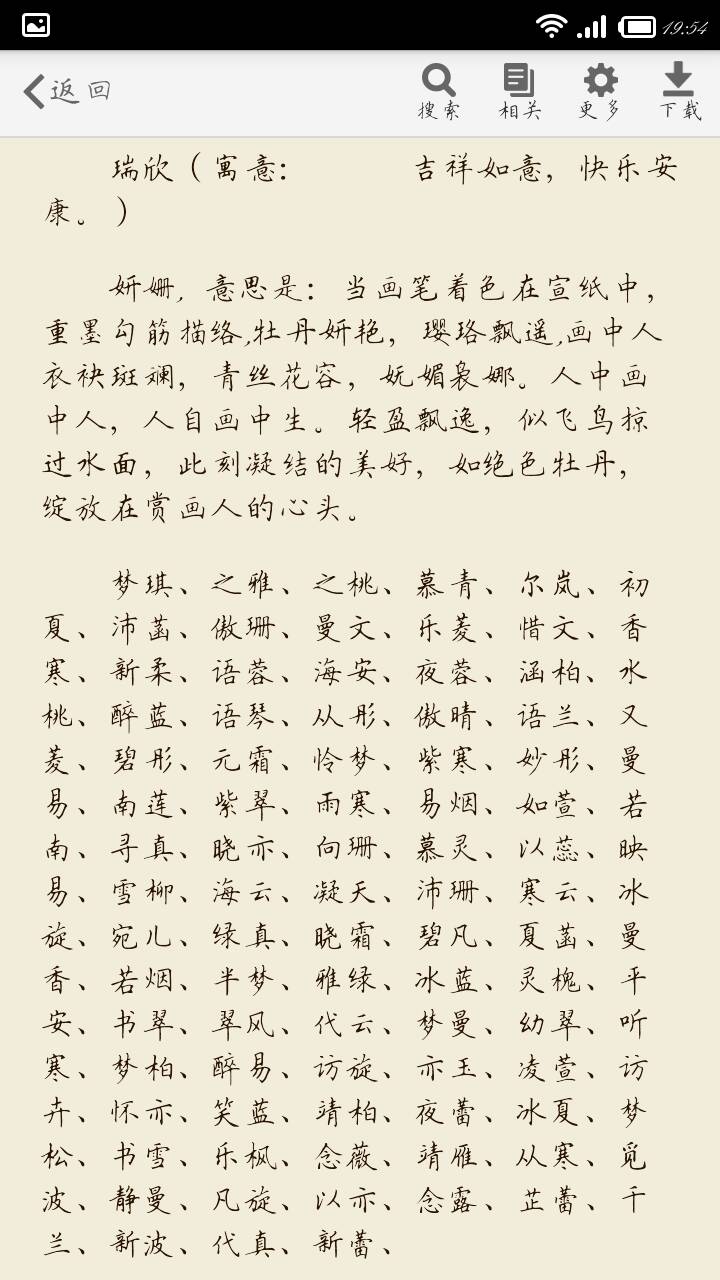 19:54
返回
搜索 相关 更多 下载
瑞欣（寓意： 吉祥如意，快乐安
康。）
妍姗，意思是：当画笔着色在宣纸中，
重墨勾筋描络,牡丹妍艳，璎珞飘遥,画中人
衣袂斑斓，青丝花容，妩媚袅娜。人中画
中人，人自画中生。轻盈飘逸，似飞鸟掠
过水面，此刻凝结的美好，如绝色牡丹，
绽放在赏画人的心头。
梦琪、之雅、之桃、慕青、尔岚、初
夏、沛菡、傲珊、曼文、乐菱、惜文、香
寒、新柔、语蓉、海安、夜蓉、涵柏、水
桃、醉蓝、语琴、从彤、傲晴、语兰、又
菱、碧彤、元霜、怜梦、紫寒、妙彤、曼
易、南莲、紫翠、雨寒、易烟、如萱、若
南、寻真、晓亦、向珊、慕灵、以蕊、映
易、雪柳、海云、凝天、沛珊、寒云、冰
旋、宛儿、绿真、晓霜、碧凡、夏菡、曼
香、若烟、半梦、雅绿、冰蓝、灵槐、平
安、书翠、翠风、代云、梦曼、幼翠、听
寒、梦柏、醉易、访旋、亦玉、凌萱、访
卉、怀亦、笑蓝、靖柏、夜蕾、冰夏、梦
松、书雪、乐枫、念薇、靖雁、从寒、觅
波、静曼、凡旋、以亦、念露、芷蕾、千
兰、新波、代真、新蕾、